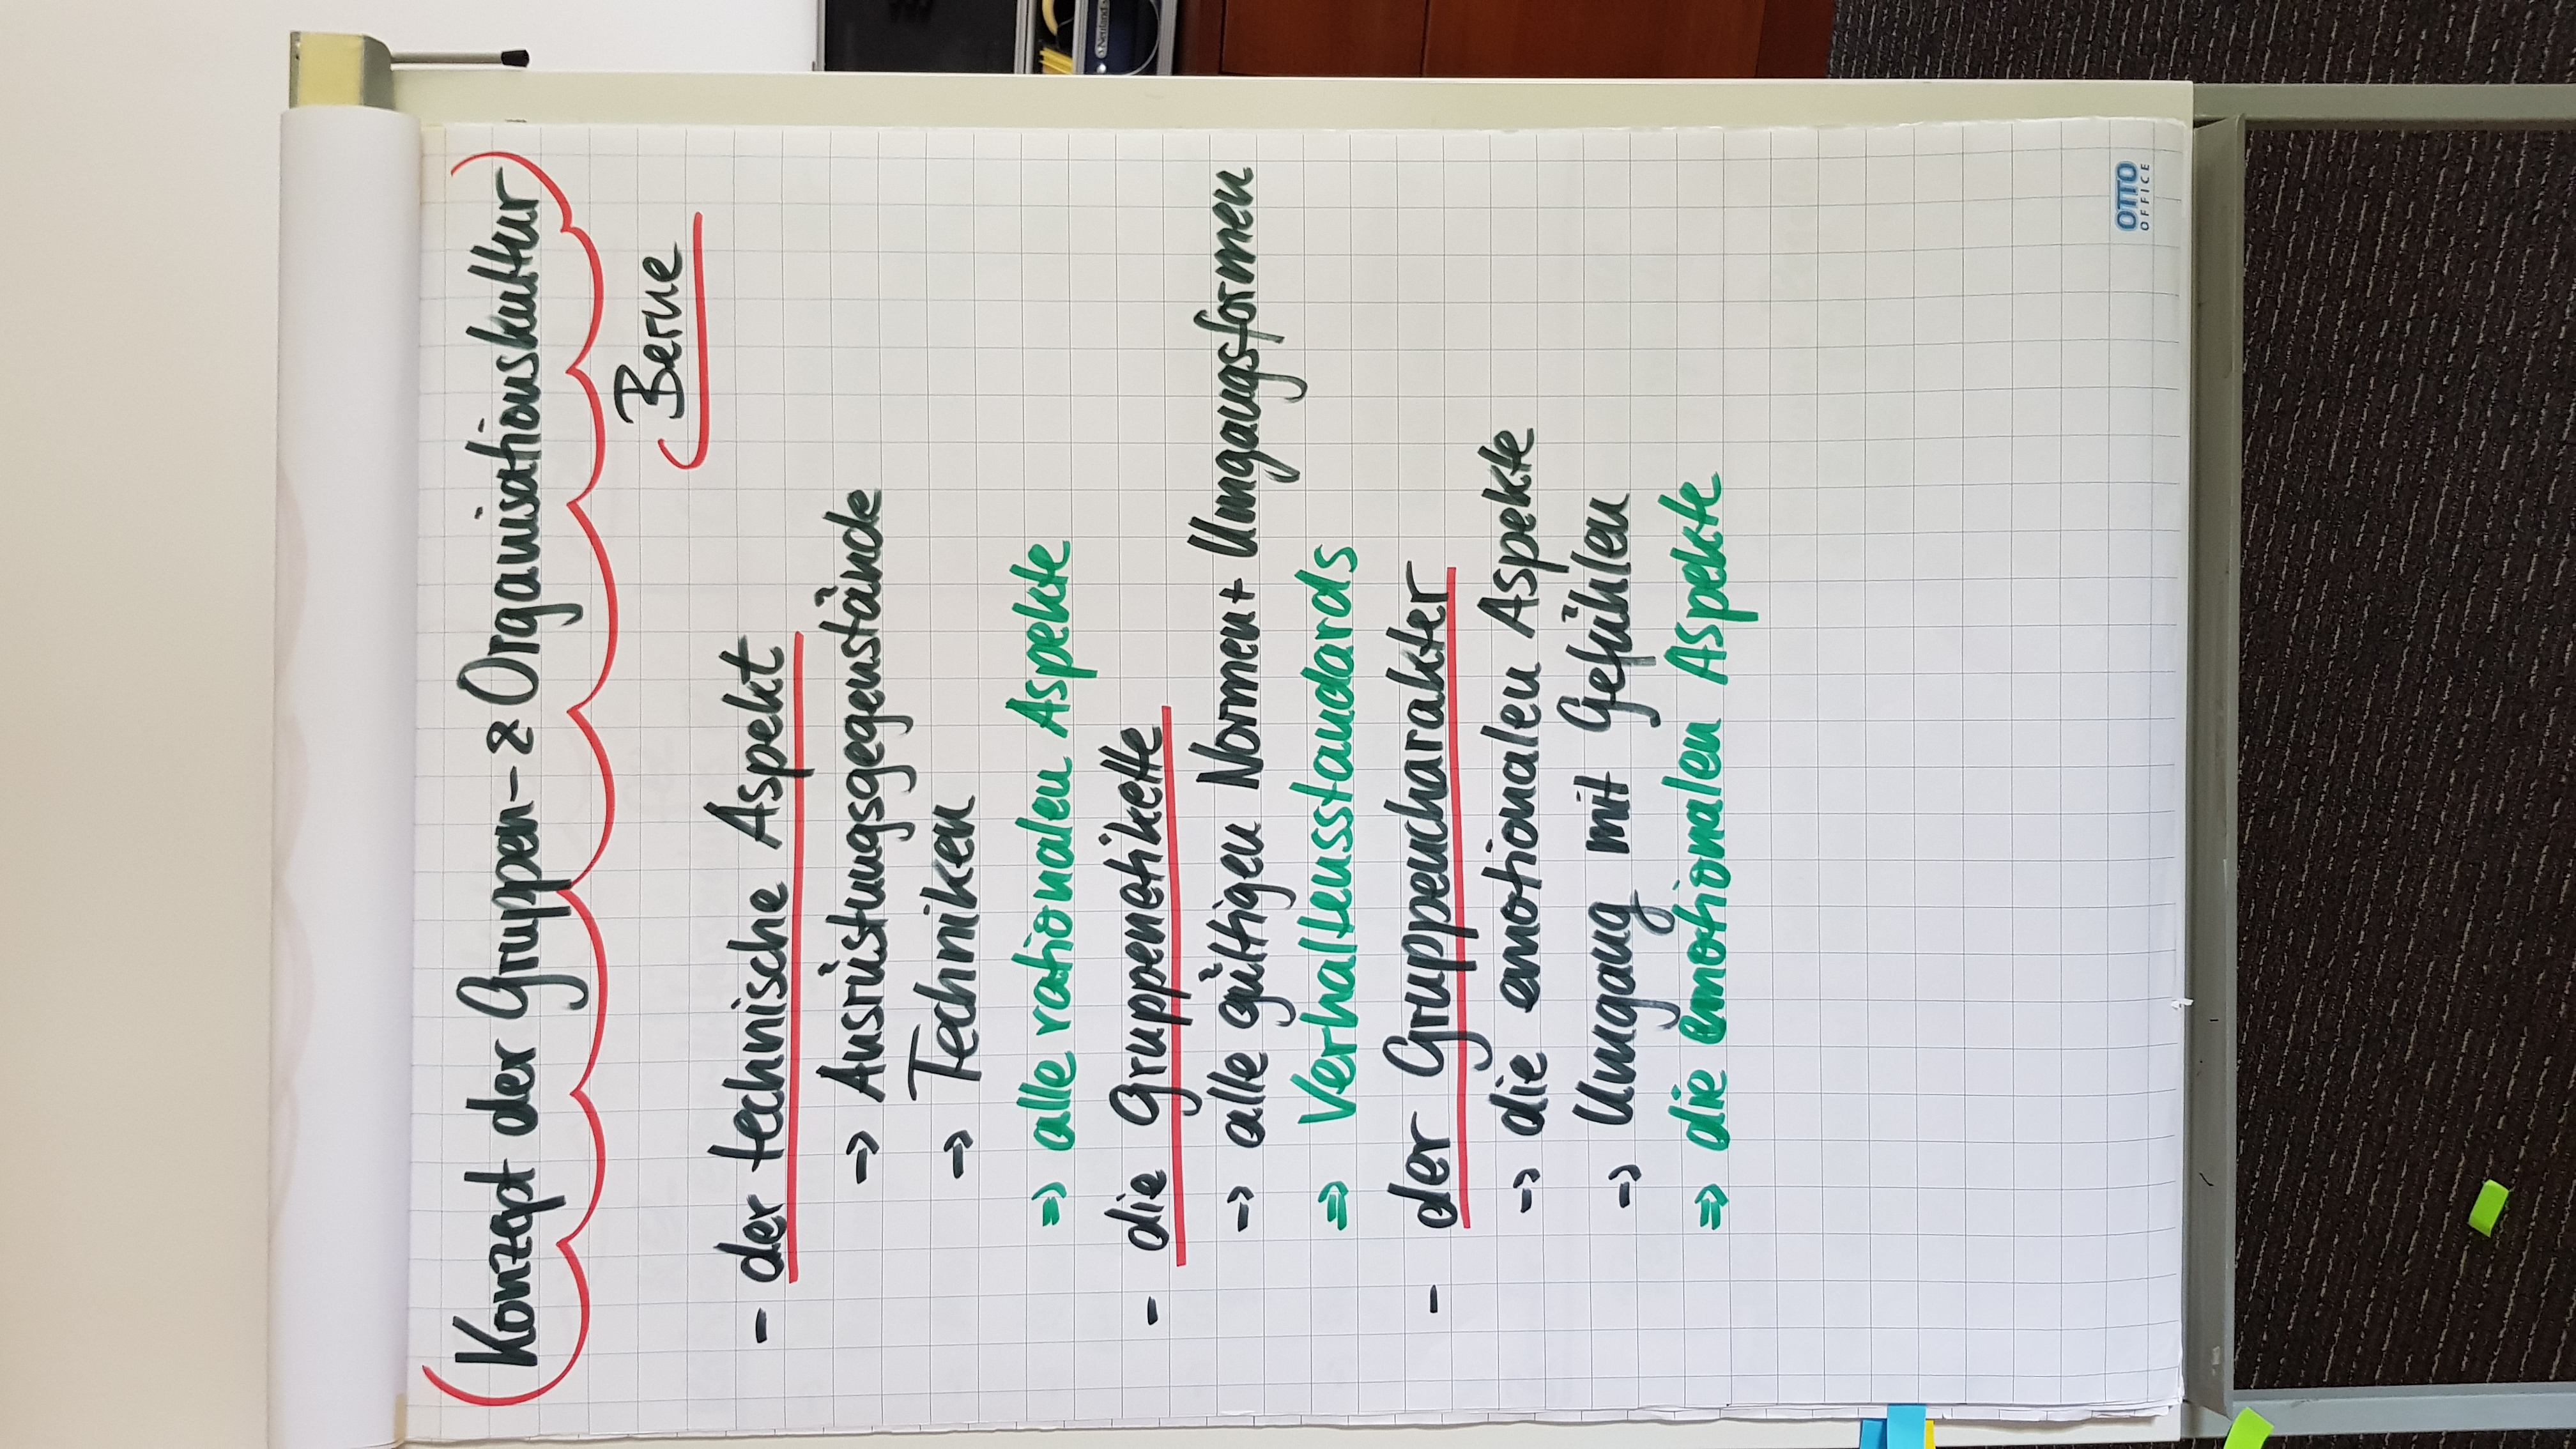 Konzept der Gruppen- & Organisationskultur
Berne
- der technische Aspekt
→ Ausrüstungsgegenstände
→ Techniken
⇒ alle rationalen Aspekte
- die Gruppenetikette
→ alle gültigen Normen + Umgangsformen
⇒ Verhaltensstandards
- der Gruppencharakter
→ die emotionalen Aspekte
→ Umgang mit Gefühlen
⇒ die emotionalen Aspekte
Neuland
OTTO
OFFICE